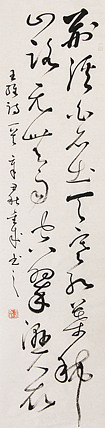 荊溪白石出天寒紅葉稀
山路元无雨空翠濕人衣
王維詩一首